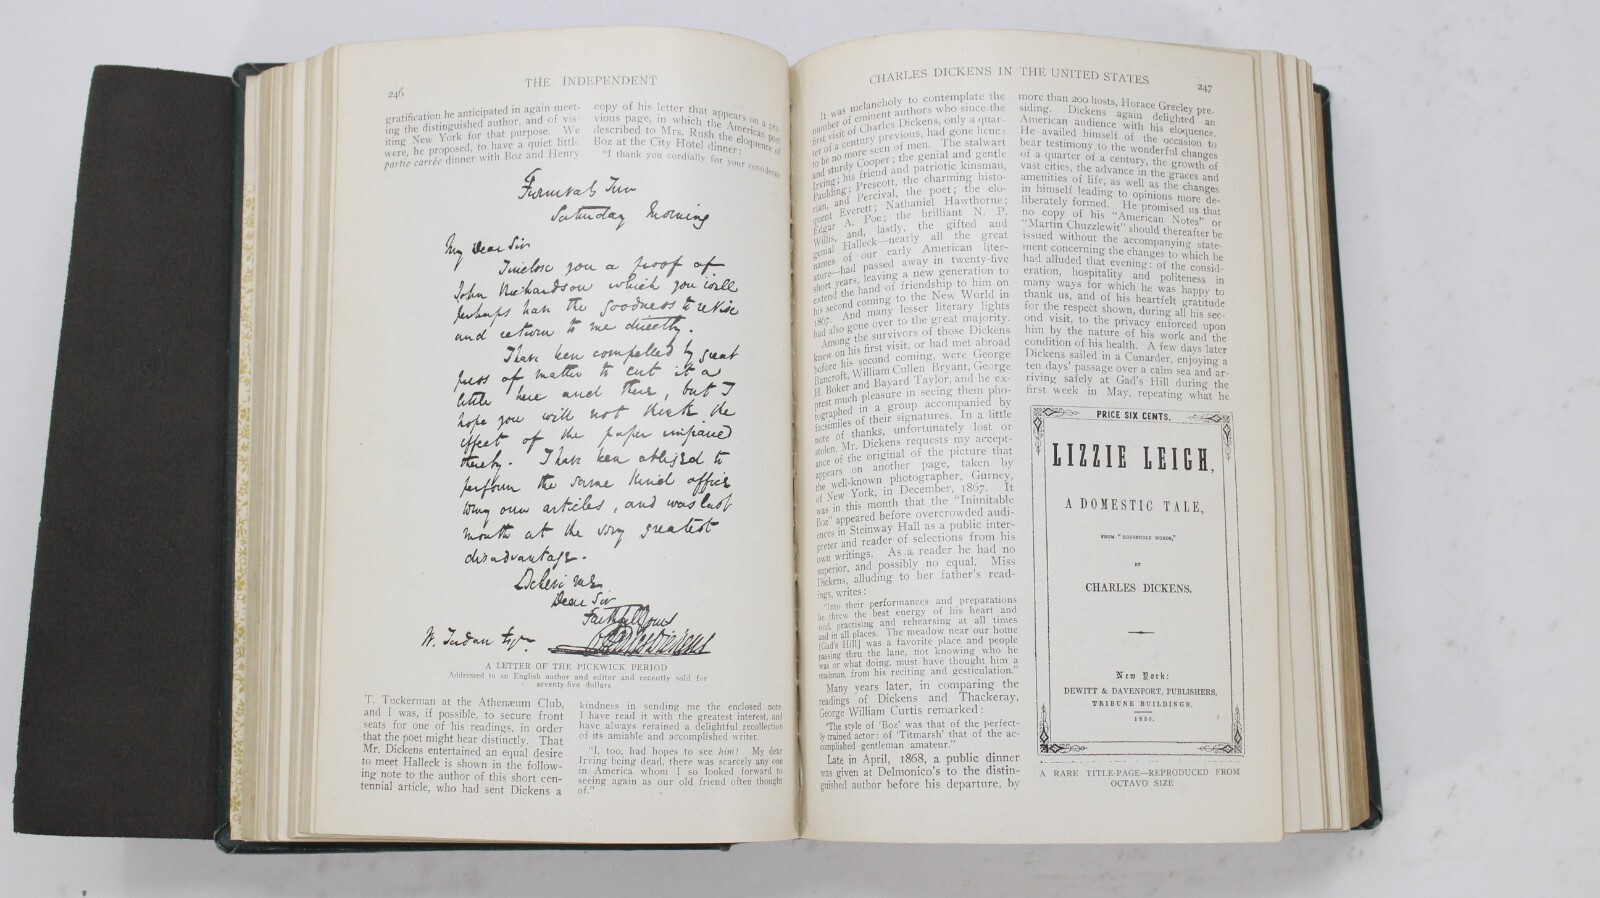 246
THE INDEPENDENT
gratification he anticipated in again meet-
ing the distinguished author, and of vis-
iting New York for that purpose. We
were, he proposed, to have a quiet little
partie carrée dinner with Boz and Henry
copy of his letter that appears on a pre-
vious page, in which the American poet
described to Mrs. Rush the eloquence of
Boz at the City Hotel dinner:
"I thank you cordially for your considerate
Furnivals Inn
Saturday Morning
My Dear Sir
I inclose you a proof of
John Richardson which you will
perhaps have the goodness to revise
and return to me directly.
I have been compelled by great
press of matter to cut it a
little here and there, but I
hope you will not think the
effect of the paper impaired
thereby. I have been obliged to
perform the same kind office
to my own articles, and was last
month at the very greatest
disadvantage.
Believe me
Dear Sir
Faithfully Yours
Charles Dickens
W. Jerdan Esqre
A LETTER OF THE PICKWICK PERIOD
Addressed to an English author and editor and recently sold for
seventy-five dollars
T. Tuckerman at the Athenæum Club,
and I was, if possible, to secure front
seats for one of his readings, in order
that the poet might hear distinctly. That
Mr. Dickens entertained an equal desire
to meet Halleck is shown in the follow-
ing note to the author of this short cen-
tennial article, who had sent Dickens a
kindness in sending me the enclosed note.
I have read it with the greatest interest, and
have always retained a delightful recollection
of its amiable and accomplished writer.
"I, too, had hopes to see him! My dear
Irving being dead, there was scarcely any one
in America whom I so looked forward to
seeing again as our old friend often thought
of."
CHARLES DICKENS IN THE UNITED STATES
247
It was melancholy to contemplate the
number of eminent authors who since the
first visit of Charles Dickens, only a quar-
ter of a century previous, had gone hence:
to be no more seen of men. The stalwart
and sturdy Cooper; the genial and gentle
Irving; his friend and patriotic kinsman,
Paulding; Prescott, the charming histo-
rian, and Percival, the poet; the elo-
quent Everett; Nathaniel Hawthorne;
Edgar A. Poe; the brilliant N. P.
Willis, and, lastly, the gifted and
genial Halleck—nearly all the great
names of our early American liter-
ature—had passed away in twenty-five
short years, leaving a new generation to
extend the hand of friendship to him on
his second coming to the New World in
1867. And many lesser literary lights
had also gone over to the great majority.
Among the survivors of those Dickens
knew on his first visit, or had met abroad
before his second coming, were George
Bancroft, William Cullen Bryant, George
H. Boker and Bayard Taylor, and he ex-
prest much pleasure in seeing them pho-
tographed in a group accompanied by
facsimiles of their signatures. In a little
note of thanks, unfortunately lost or
stolen, Mr. Dickens requests my accept-
ance of the original of the picture that
appears on another page, taken by
the well-known photographer, Gurney,
of New York, in December, 1867. It
was in this month that the "Inimitable
Boz" appeared before overcrowded audi-
ences in Steinway Hall as a public inter-
preter and reader of selections from his
own writings. As a reader he had no
superior, and possibly no equal. Miss
Dickens, alluding to her father's read-
ings, writes:
"Into their performances and preparations
he threw the best energy of his heart and
soul, practising and rehearsing at all times
and in all places. The meadow near our home
[Gad's Hill] was a favorite place and people
passing thru the lane, not knowing who he
was or what doing, must have thought him a
madman, from his reciting and gesticulation."
Many years later, in comparing the
readings of Dickens and Thackeray,
George William Curtis remarked:
"The style of 'Boz' was that of the perfect-
ly trained actor: of 'Titmarsh' that of the ac-
complished gentleman amateur."
Late in April, 1868, a public dinner
was given at Delmonico's to the distin-
guished author before his departure, by
more than 200 hosts, Horace Greeley pre-
siding. Dickens again delighted an
American audience with his eloquence.
He availed himself of the occasion to
bear testimony to the wonderful changes
of a quarter of a century, the growth of
vast cities, the advance in the graces and
amenities of life, as well as the changes
in himself leading to opinions more de-
liberately formed. He promised us that
no copy of his "American Notes" or
"Martin Chuzzlewit" should thereafter be
issued without the accompanying state-
ment concerning the changes to which he
had alluded that evening; of the consid-
eration, hospitality and politeness in
many ways for which he was happy to
thank us, and of his heartfelt gratitude
for the respect shown, during all his sec-
ond visit, to the privacy enforced upon
him by the nature of his work and the
condition of his health. A few days later
Dickens sailed in a Cunarder, enjoying a
ten days' passage over a calm sea and ar-
riving safely at Gad's Hill during the
first week in May, repeating what he
PRICE SIX CENTS.
LIZZIE LEIGH,
A DOMESTIC TALE,
FROM "HOUSEHOLD WORDS,"
BY
CHARLES DICKENS.
New York:
DEWITT & DAVENPORT, PUBLISHERS,
TRIBUNE BUILDINGS.
1850.
A RARE TITLE-PAGE—REPRODUCED FROM
OCTAVO SIZE